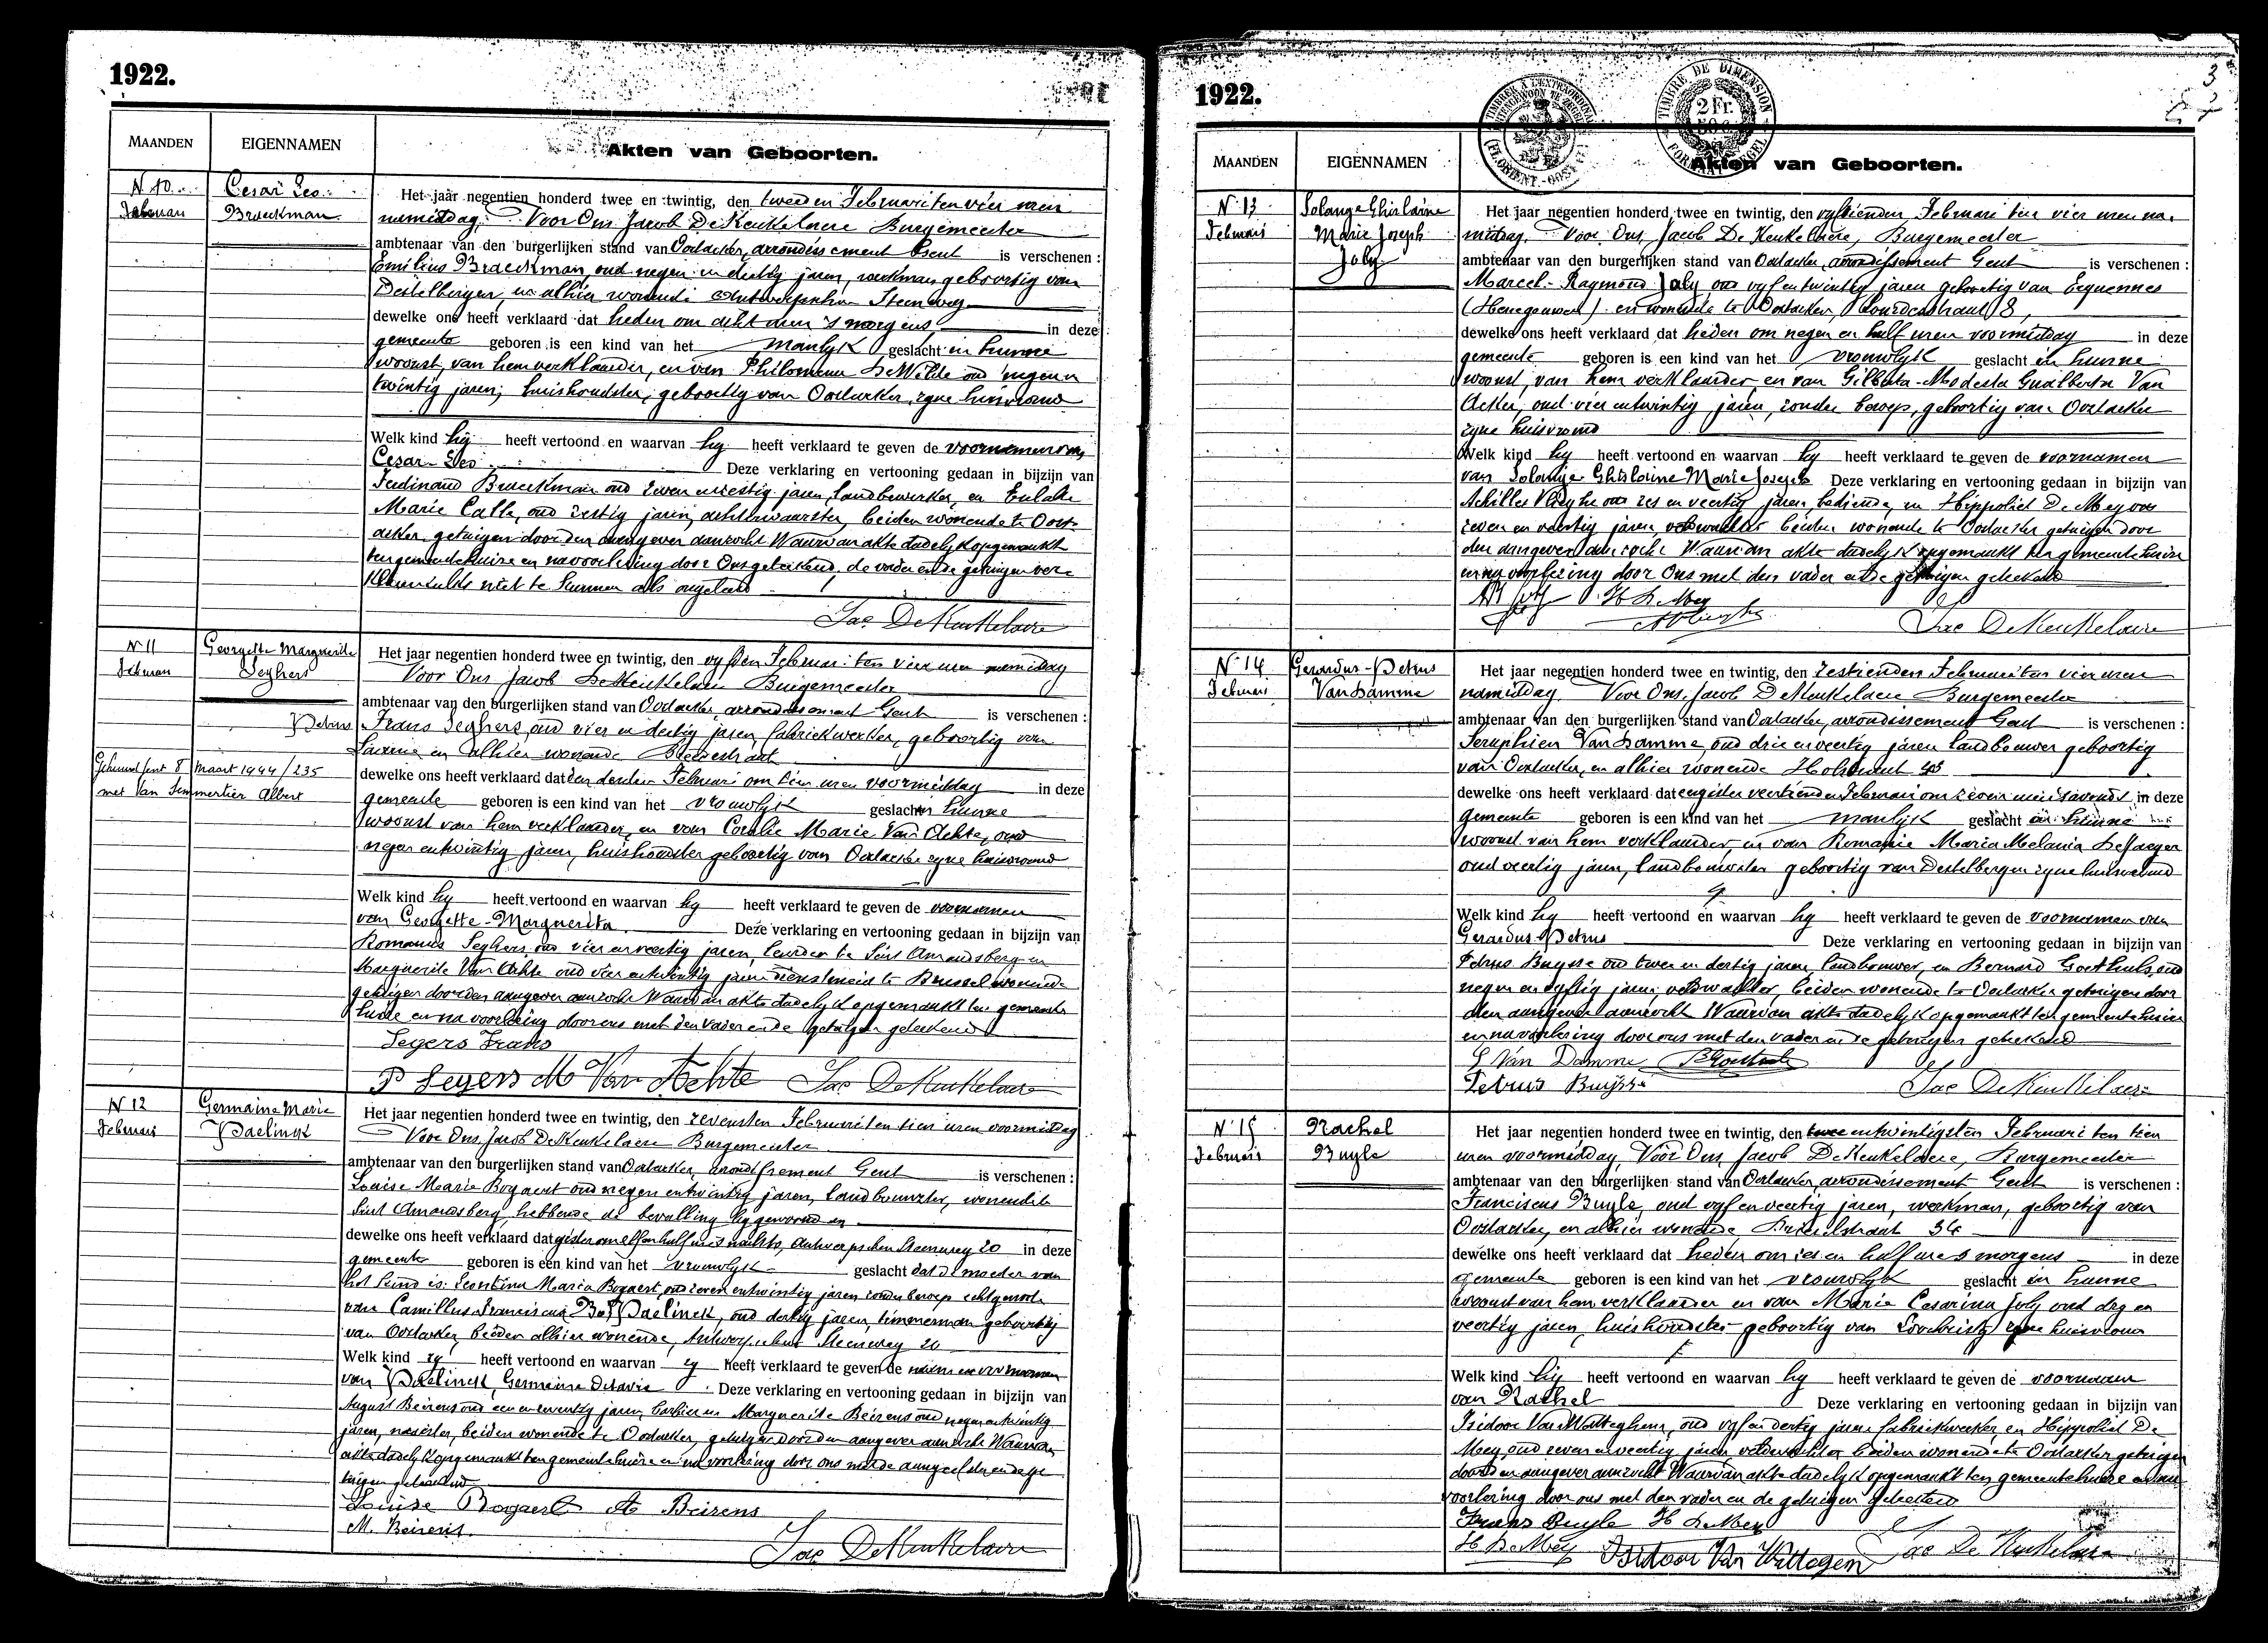 1922.
MAANDEN EIGENNAMEN Akten van Geboorten.
N 10. Cesar Leo
Februari Braeckman
Het jaar negentien honderd twee en twintig, den tweeden Februari ten vier uren
namiddag. Voor Ons Jacob De Keukelaere Burgemeester
ambtenaar van den burgerlijken stand van Oostacker, arrondissement Gent is verschenen :
Emilius Braeckman, oud negen en dertig jaren, werkman geboortig van
Destelbergen, en alhier wonende Antwerpschen Steenweg
dewelke ons heeft verklaard dat heden om acht uren 's morgens, in deze
gemeente geboren is een kind van het manlyk geslacht in hunne
woonst, van hem verklaarder, en van Philomena De Wilde oud negen en
twintig jaren, huishoudster, geboortig van Oostacker, zyne huisvrouw
Welk kind hij heeft vertoond en waarvan hy heeft verklaard te geven de voornamen van
Cesar-Leo Deze verklaring en vertooning gedaan in bijzijn van
Ferdinand Braeckman oud zeven en zestig jaren, landbewerker, en Eulalie
Marie Calle, oud zestig jaren, achterwaarster, beiden wonende te Oost-
acker, getuigen door den aangever aanzocht Waarvan akte dadelyk opgemaakt
ten gemeentehuize en na voorlezing door Ons geteekend, de vader en de getuigen ver-
klaarende niet te kunnen als ongeleerd
Jac. De Keukelaere
N 11 Georgette Marguerite
Februari Seghers
Het jaar negentien honderd twee en twintig, den vyfden Februari ten vier uren namiddag
Voor Ons Jacob De Keukelaere Burgemeester
ambtenaar van den burgerlijken stand van Oostacker, arrondissement Gent is verschenen :
Petrus Frans Seghers, oud vier en dertig jaren, fabriekwerker, geboortig van
Laarne en alhier wonende Bredestraat
Gehuwd Gent 8 Maart 1944/235
met Van Simmertier Albert
dewelke ons heeft verklaard dat den derden Februari om tien uren voormiddag in deze
gemeente geboren is een kind van het vrouwlyk geslacht in hunne
woonst van hem verklaarder, en van Coralie Marie Van Achte, oud
negen en twintig jaren, huishoudster geboortig van Oostacker zyne huisvrouw
Welk kind hy heeft vertoond en waarvan hy heeft verklaard te geven de voornamen
van Georgette-Marguerita. Deze verklaring en vertooning gedaan in bijzijn van
Romanus Seghers oud vier en veertig jaren, te Sint Amandsberg en
Marguerite Van Achte oud vier en twintig jaren dienstmeid te Brussel wonende
getuigen door den aangever aanzocht Waarvan akte dadelyk opgemaakt ten gemeente
huize en na voorlezing door ons met den vader en de getuigen geteekend
Segers Frans
P Segers M Van Achte Jac De Keukelaere
N 12 Germaine Marie
Februari Paelinck
Het jaar negentien honderd twee en twintig, den zevensten Februari ten tien uren voormiddag
Voor Ons Jacob De Keukelaere Burgemeester
ambtenaar van den burgerlijken stand van Oostacker, arrondissement Gent is verschenen :
Louise Marie Bogaert oud negen en twintig jaren, landbouwster, wonende te
Sint Amandsberg, hebbende de bevalling bygewoond en
dewelke ons heeft verklaard dat gister om elf en half uren 's nachts, Antwerpschen Steenweg 20 in deze
gemeente geboren is een kind van het vrouwlyk geslacht dat de moeder van
het kind is: Leontina Maria Bogaert, oud zeven en twintig jaren zonder beroep echtgenoote
van Camillus Franciscus Paelinck, oud dertig jaren, timmerman geboortig
van Oostacker, beiden alhier wonende, Antwerpschen Steenweg 20
Welk kind zy heeft vertoond en waarvan zy heeft verklaard te geven de naam en voornamen
van Paelinck, Germaine Octavie. Deze verklaring en vertooning gedaan in bijzijn van
August Beirens oud een en twintig jaren, barbier en Marguerite Beirens oud negen en twintig
jaren, naaister, beiden wonende te Oostacker, getuigen door den aangever aanzocht Waarvan
akte dadelyk opgemaakt ten gemeentehuize en na voorlezing door ons met de aangeefster en de ge-
tuigen geteekend
Louise Bogaert A Beirens
M. Beirens.
Jac De Keukelaere
1922.
TIMBRE DE DIMENSION
2 Fr.
3
MAANDEN EIGENNAMEN Akten van Geboorten.
N 13 Solange Ghislaine
Februari Marie Joseph
Joly
Het jaar negentien honderd twee en twintig, den vyftienden Februari ten vier uren na-
middag. Voor Ons, Jacob De Keukelaere, Burgemeester
ambtenaar van den burgerlijken stand van Oostacker, arrondissement Gent is verschenen :
Marcel-Raymond Joly oud vyf en twintig jaren geboortig van Ecquennes
(Henegouwen) en wonende te Oostacker, Lourdesstraat 8,
dewelke ons heeft verklaard dat heden om negen en half uren voormiddag in deze
gemeente geboren is een kind van het vrouwlyk geslacht in hunne
woonst, van hem verklaarder, en van Gilberta-Modesta Gualberta Van
Acker, oud vier en twintig jaren, zonder beroep, geboortig van Oostacker
zyne huisvrouw
Welk kind hy heeft vertoond en waarvan hy heeft verklaard te geven de voornamen
van Solange Ghislaine Marie Joseph Deze verklaring en vertooning gedaan in bijzijn van
Achilles oud zes en veertig jaren, bediende, en Hippoliet De Mey oud
zeven en veertig jaren veldwachter beiden wonende te Oostacker getuigen door
den aangever aanzocht Waarvan akte dadelyk opgemaakt ten gemeentehuize
en na voorlezing door Ons met den vader en de getuigen geteekend
M Joly H De Mey
Jac De Keukelaere
N 14 Gerardus-Petrus
Februari Van Damme
Het jaar negentien honderd twee en twintig, den zestienden Februari ten vier uren
namiddag. Voor Ons, Jacob De Keukelaere Burgemeester
ambtenaar van den burgerlijken stand van Oostacker, arrondissement Gent is verschenen :
Seraphien Van Damme oud drie en veertig jaren landbouwer geboortig
van Oostacker, en alhier wonende Holstraat
dewelke ons heeft verklaard dat eergister veertienden Februari om zeven uren 's avonds in deze
gemeente geboren is een kind van het manlyk geslacht in hunne
woonst van hem verklaarder, en van Romanie Maria Melania De Jaeger
oud veertig jaren, landbouwster geboortig van Destelbergen zyne huisvrouw
Welk kind hy heeft vertoond en waarvan hy heeft verklaard te geven de voornamen van
Gerardus-Petrus Deze verklaring en vertooning gedaan in bijzijn van
Petrus Buysse oud twee en dertig jaren landbouwer, en Bernard Goethals oud
negen en vyftig jaren veldwachter beiden wonende te Oostacker getuigen door
den aangever aanzocht Waarvan akte dadelyk opgemaakt ten gemeentehuize
en na voorlezing door ons met den vader en de getuigen geteekend
S Van Damme B Goethals
Petrus Buijsse Jac De Keukelaere
N 15 Rachel
Februari Buyle
Het jaar negentien honderd twee en twintig, den twee en twintigsten Februari ten tien
uren voormiddag, Voor Ons Jacob De Keukelaere, Burgemeester
ambtenaar van den burgerlijken stand van Oostacker, arrondissement Gent is verschenen :
Franciscus Buyle, oud vyf en veertig jaren, werkman, geboortig van
Oostacker, en alhier wonende, 34
dewelke ons heeft verklaard dat heden om zes en half uren 's morgens in deze
gemeente geboren is een kind van het vrouwlyk geslacht in hunne
woonst van hem verklaarder en van Marie Cesarina Joly oud dry en
veertig jaren, huishoudster geboortig van Loochristy zyne huisvrouw
Welk kind hij heeft vertoond en waarvan hy heeft verklaard te geven de voornaam
van Rachel Deze verklaring en vertooning gedaan in bijzijn van
Isidoor Van Watteghem, oud vyf en dertig jaren fabriekwerker, en Hippoliet De
Mey, oud zeven en veertig jaren veldwachter beiden wonende te Oostacker getuigen
door den aangever aanzocht Waarvan akte dadelyk opgemaakt ten gemeentehuize en na
voorlezing door ons met den vader en de getuigen geteekend
Frans Buyle H De Mey
H De Mey Isidoor Van Wattegem Jac De Keukelaere